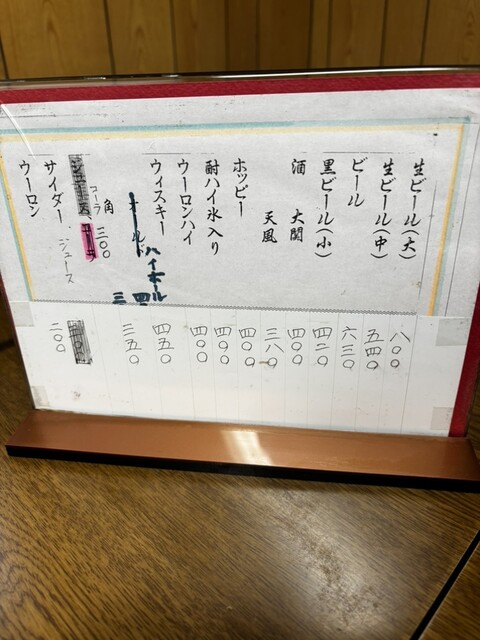 生ビール(大) 八〇〇
生ビール(中) 五四〇
ビール 六三〇
黒ビール(小) 四二〇
酒 大関 四〇〇
天風 三八〇
ホッピー 四〇〇
酎ハイ氷入り 四〇〇
ウーロンハイ 四〇〇
ウィスキー 四五〇
ハイボール 四
オールド 三
角 三五〇
コーラ 三〇〇
サイダー ジュース 二〇〇
ウーロン